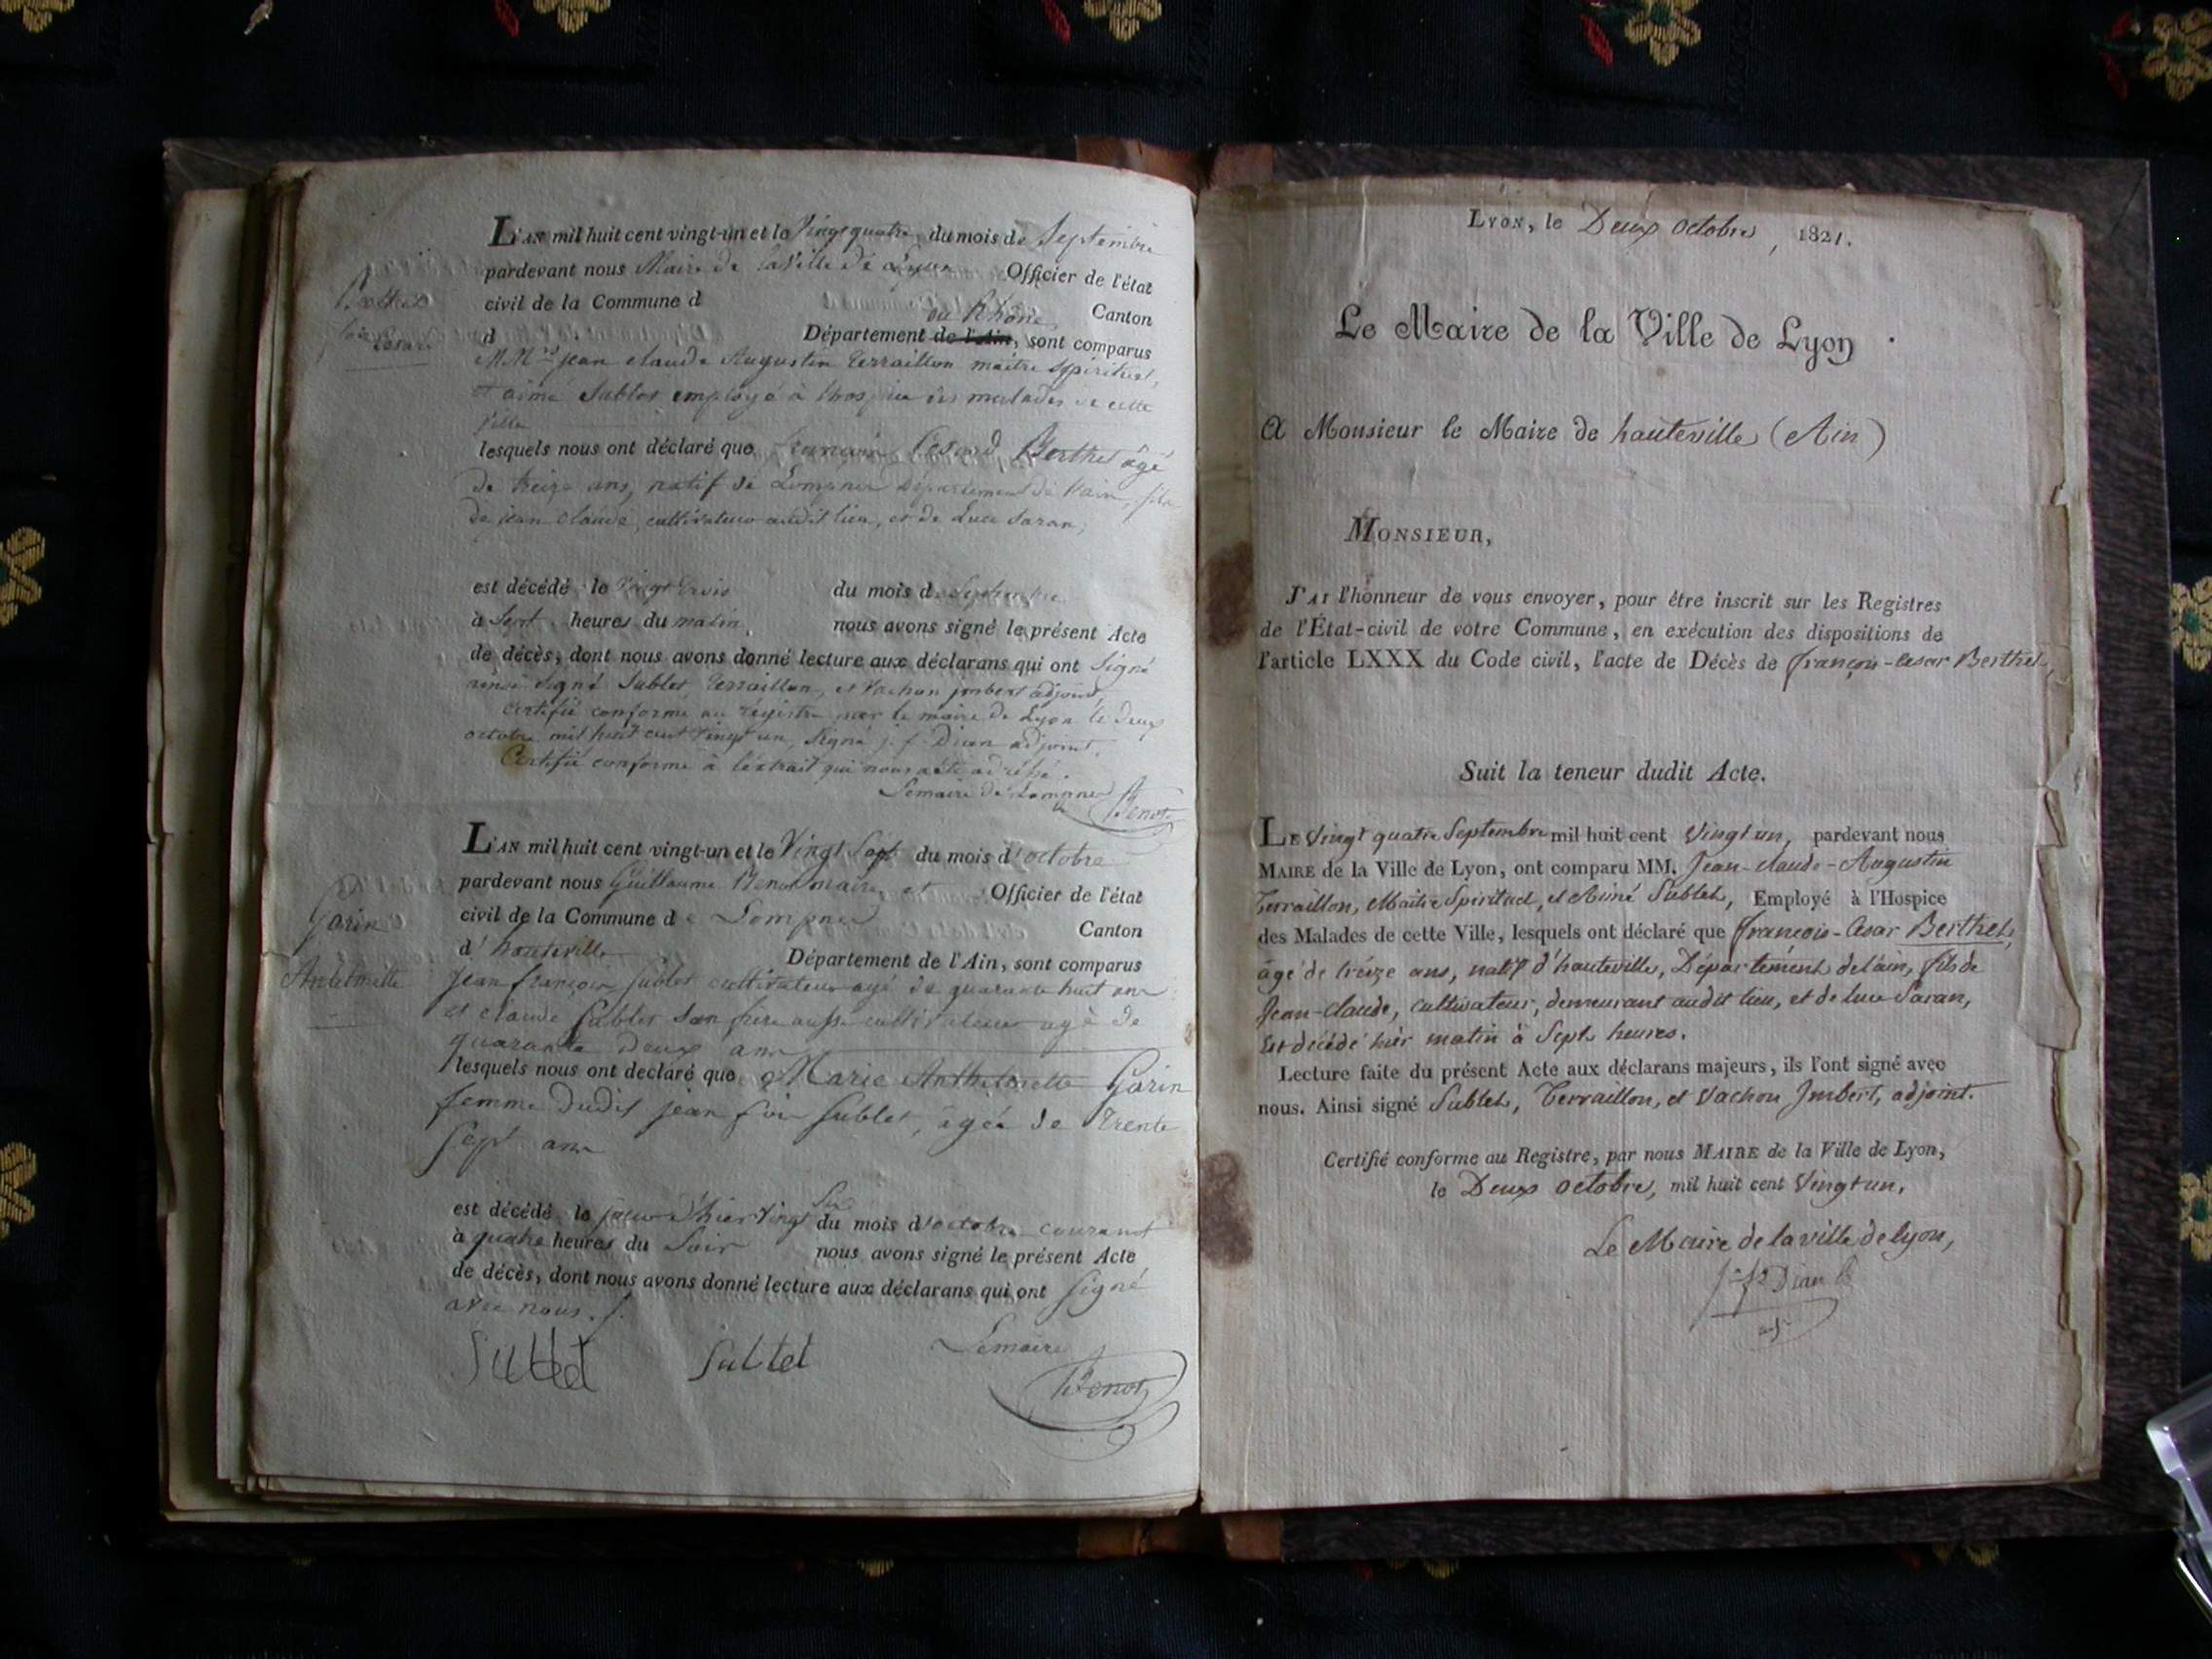 L'AN mil huit cent vingt-un et le Vingt quatre du mois de Septembre
pardevant nous Maire de la Ville de Lyon Officier de l'état
civil de la Commune d Canton
du Rhône
d Département de l'Ain, sont comparus
Berthet
César
MM.rs jean claude Augustin Terraillon maitre Spirituel,
et aimé Sublet employé à l'hospice des malades de cette
Ville
lesquels nous ont déclaré que César Berthet âgé
de treize ans, natif de Lompner Département de l'ain, fils
de jean claude, cultivateur audit lieu, et de Luce Saran,
est décédé le Vingt trois du mois de Septembre
à Sept heures du matin, nous avons signé le présent Acte
de décès, dont nous avons donné lecture aux déclarans qui ont Signé
ainsi Signé Sublet, Terraillon, et Vachon jmbert adjoint,
Certifié conforme au registre par le maire de Lyon le deux
octobre mil huit cent Vingt un, Signé j. f. Dian adjoint.
Certifié conforme à l'extrait qui nous a été adréssé.
Lemaire de Lompner Benot
L'AN mil huit cent vingt-un et le Vingt Sept du mois d'octobre
pardevant nous Guillaume Benot maire et Officier de l'état
civil de la Commune de Lompner Canton
d'hauteville Département de l'Ain, sont comparus
Garin
Anthelmette
Jean françois Sublet cultivateur agé de quarante huit ans
et claude Sublet Son frere aussi cultivateur agé de
quarante deux ans
lesquels nous ont declaré que Marie Anthelmette Garin
femme dudit jean fois Sublet, agée de trente
Sept ans
est décédé le jour d'hier Vingt Six du mois d'octobre courant
à quatre heures du Soir nous avons signé le présent Acte
de décès, dont nous avons donné lecture aux déclarans qui ont Signé
avec nous.
Sublet Sublet Lemaire
Benot
LYON, le Deux octobre, 1821.
Le Maire de la Ville de Lyon
A Monsieur le Maire de hauteville (Ain)
MONSIEUR,
J'AI l'honneur de vous envoyer, pour être inscrit sur les Registres
de l'État-civil de votre Commune, en exécution des dispositions de
l'article LXXX du Code civil, l'acte de Décès de françois-Cesar Berthet,
Suit la teneur dudit Acte.
LE Vingt quatre Septembre mil huit cent Vingt un, pardevant nous
MAIRE de la Ville de Lyon, ont comparu MM. Jean-claude-Augustin
Terraillon, Maitre Spirituel, et Aimé Sublet, Employé à l'Hospice
des Malades de cette Ville, lesquels ont déclaré que françois-Cesar Berthet,
âgé de treize ans, natif d'hauteville, Département de l'ain, fils de
Jean-claude, cultivateur, demeurant audit lieu, et de luce Saran,
Est décédé hier matin à Sept heures.
Lecture faite du présent Acte aux déclarans majeurs, ils l'ont signé avec
nous. Ainsi signé Sublet, Terraillon, et Vachon Jmbert, adjoint.
Certifié conforme au Registre, par nous MAIRE de la Ville de Lyon,
le Deux octobre, mil huit cent Vingt un,
Le Maire de la ville de lyon,
j. f. Dian
adj.